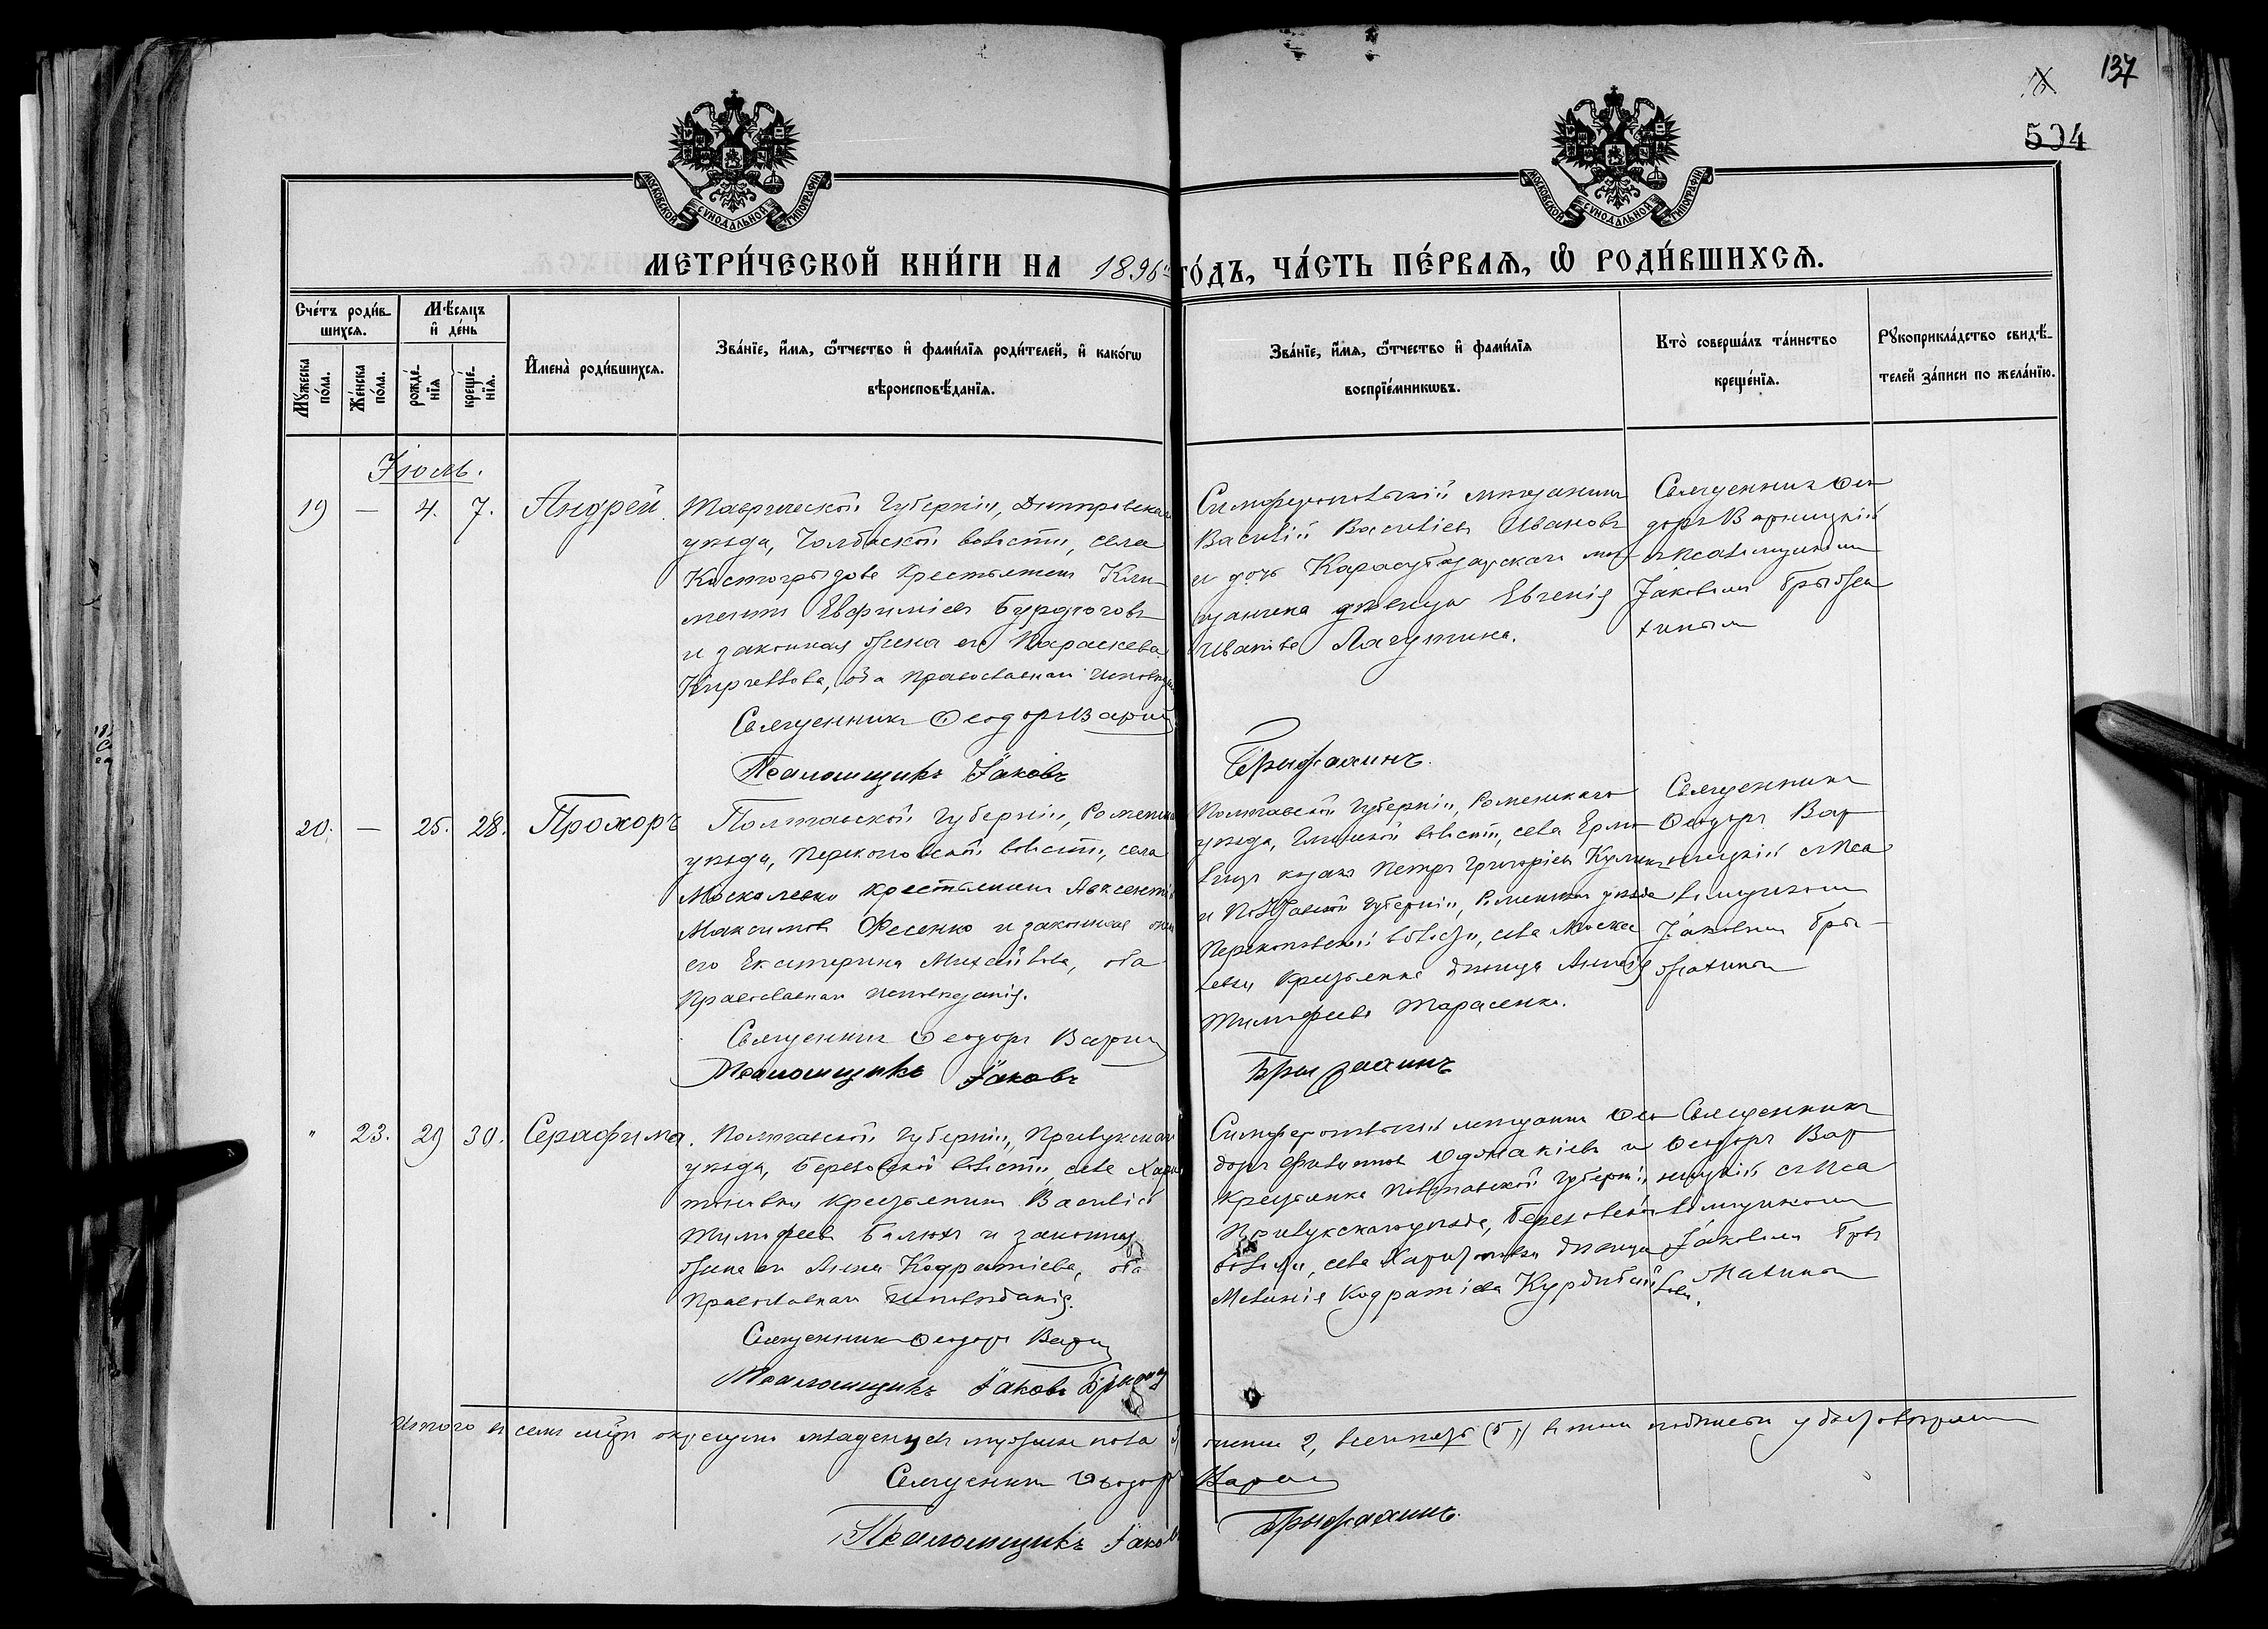 137
504
МОСКОВСКОЙ СѴНОДАЛЬНОЙ ТИПОГРАФІИ
МОСКОВСКОЙ СѴНОДАЛЬНОЙ ТИПОГРАФІИ
МЕТРИ́ЧЕСКОЙ КНИ́ГИ НА 1896 ГО́ДЪ, ЧА́СТЬ ПЕ́РВАѦ, Ѡ҆ РОДИ́ВШИХСѦ.
Сче́тъ роди́в-
шихсѧ.
Мѣ́сяцъ
и҆ де́нь
Мꙋ́жеска
по́ла.
Же́нска
по́ла.
рожде́-
нїѧ
креще́-
нїѧ.
И҆мена̀ роди́вшихсѧ.
Зва́нїе, и҆́мѧ, ѻ҆́тчество и҆ фами́лїѧ роди́телей, и҆ како́гѡ
вѣроисповѣ́данїѧ.
Зва́нїе, и҆́мѧ, ѻ҆́тчество и҆ фами́лїѧ
воспрїе́мникѡвъ.
Кто̀ соверша́лъ та́инство
креще́нїѧ.
Рꙋкоприкла́дство свидѣ́-
телей за́писи по жела́нїю.
Іюль.
19 — 4. 7. Андрей
Таврической Губерніи, Днепровскаго
уезда, Чалбаской волости, села
Костогрызово крестьянин Кли-
ментъ Евфиміевъ Бурдюговъ
и законная жена его Параскева
Кириллова, оба Православнаго исповед
Священникъ Ѳеодоръ Варниц
Псаломщикъ Іаковъ
Симферопольскій мещанинъ
Василій Васильевъ Ивановъ
и дочь Карасубазарскаго ме-
щанина девица Евгенія
Иванова Лагутина.
Брыжахинъ.
Священникъ Ѳео
доръ Варницкій
съ псаломщикомъ
Іаковомъ Брыжа
хинымъ
20. — 25. 28. Прохоръ
Полтавской Губерніи, Роменскаго
уезда, Перекоповской волости, села
Москалевки крестьянинъ Авксентій
Максимовъ Фесенко и законная жена
его Екатерина Михайлова, оба
Православнаго исповеданія.
Священникъ Ѳеодоръ Варниц
Псаломщикъ Іаковъ
Полтавской Губерніи, Роменскаго
уезда, Глинской волости, села Ярмо-
казакъ Петръ Григорьевъ Кулик
и Полтавской губерніи, Роменскаго уезда
Перекоповской волости, села Моска
левки крестьянка девица
Тимофеева Тарасенко.
Брыжахинъ
Священникъ
Ѳеодоръ Вар
ницкій съ Пса
ломщикомъ
Іаковомъ Бры-
жахинымъ
" 23. 29 30. Серафима.
Полтавской Губерніи, Прилукскаго
уезда, Березовской волости, села Хари
тоновки крестьянинъ Василій
Тимофеевъ Балюкъ и законная
жена его Анна Кодратіева, оба
Православнаго исповеданія.
Священникъ Ѳеодоръ Варниц
Псаломщикъ Іаковъ Брыж
Симферопольскій мещанинъ Ѳео
доръ Филипповъ и
крестьянка Полтавской Губерніи
Прилукскаго уезда, Березовской
волости, села Харитоновки девица
Меланія Кодратіева
Священникъ
Ѳеодоръ Вар
ницкій съ Пса
ломщикомъ
Іаковомъ Бры
жахинымъ
Итого въ семъ окрещено младенцевъ мужеска пола женска 2, всего пять (5)
Священникъ Ѳеодоръ Варниц
Псаломщикъ Іаковъ Брыжахинъ.